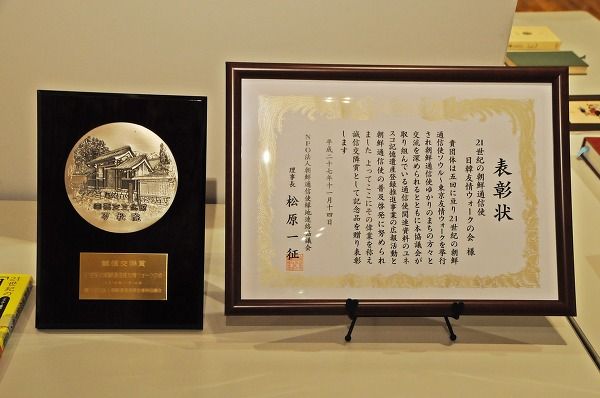 表彰状
21世紀の朝鮮通信使
日韓友情ウォークの会 様
貴団体は五回に亘り21世紀の朝鮮
通信使ソウル～東京友情ウォークを挙行
され朝鮮通信使ゆかりのまちの方々と
交流を深められるとともに本協議会が
取り組んでいる通信使関連資料のユネ
スコ記憶遺産登録推進事業の広報活動と
朝鮮通信使の普及啓発に努められ
ました よってここにその偉業を称え
誠信交隣賞として記念品を贈り表彰
します
平成二十七年十一月十四日
NPO法人朝鮮通信使縁地連絡協議会
理事長 松原一征
誠信交隣賞
21世紀の